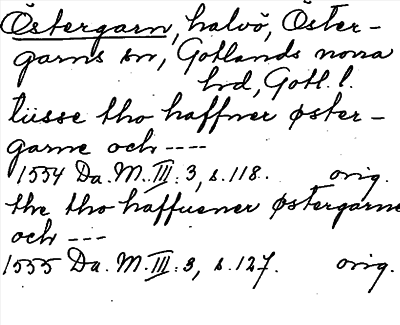 Östergarn, halvö, Öster-
garns sn, Gotlands norra
hd, Gotl. l.
tüsse tho haffner øster-
garne och ----
1554 Da. M. III: 3, s. 118. orig.
the tho haffuener østergarne
och ---
1555 Da. M. III: 3, s. 127. orig.